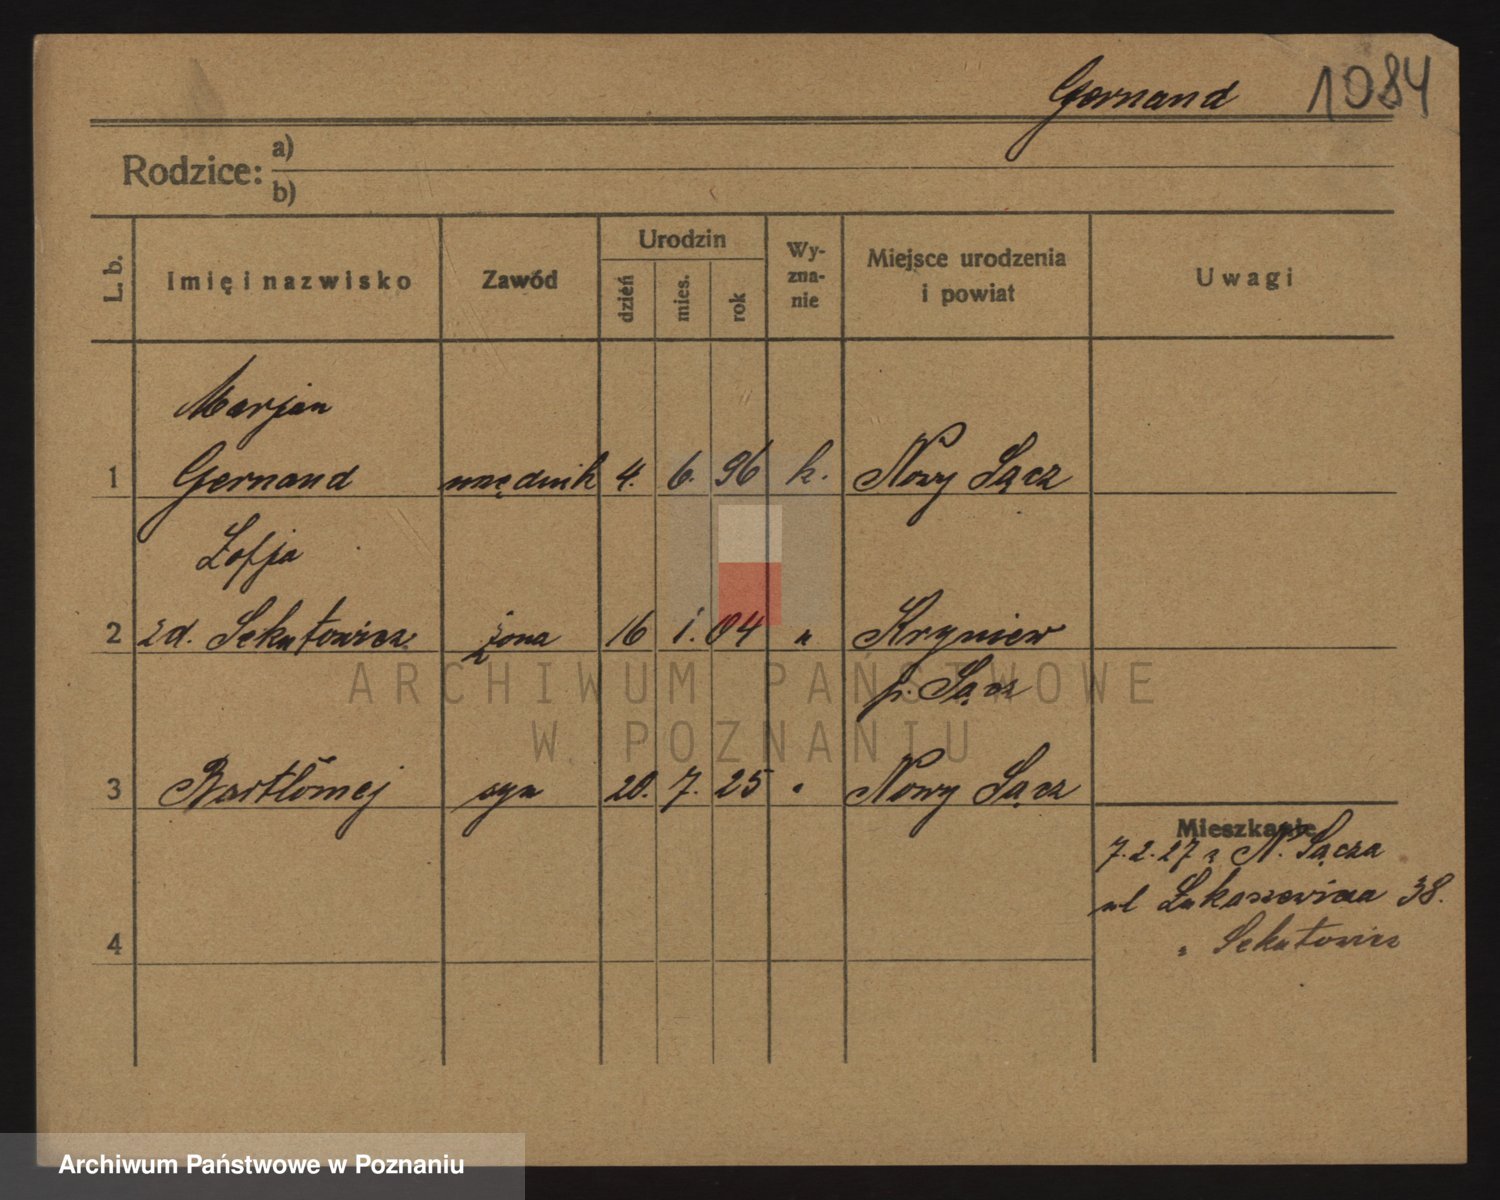 Gernand 1084
Rodzice: a)
b)
L. b. Imię i nazwisko Zawód Urodzin dzień mies. rok Wy-zna-nie Miejsce urodzenia i powiat Uwagi
Marjan
1 Gernand urzędnik 4. 6. 96 k. Nowy Sącz
Zofja
2 zd. Sekutowicz żona 16 1. 04 "
p. Sącz
3 Bartłómej syn 20. 7. 25 " Nowy Sącz
Mieszkanie
7.2.27 z N. Sącza
ul Łukaszewicza 38.
z Sekutowicz
4
ARCHIWUM PAŃSTWOWE
W POZNANIU
Archiwum Państwowe w Poznaniu